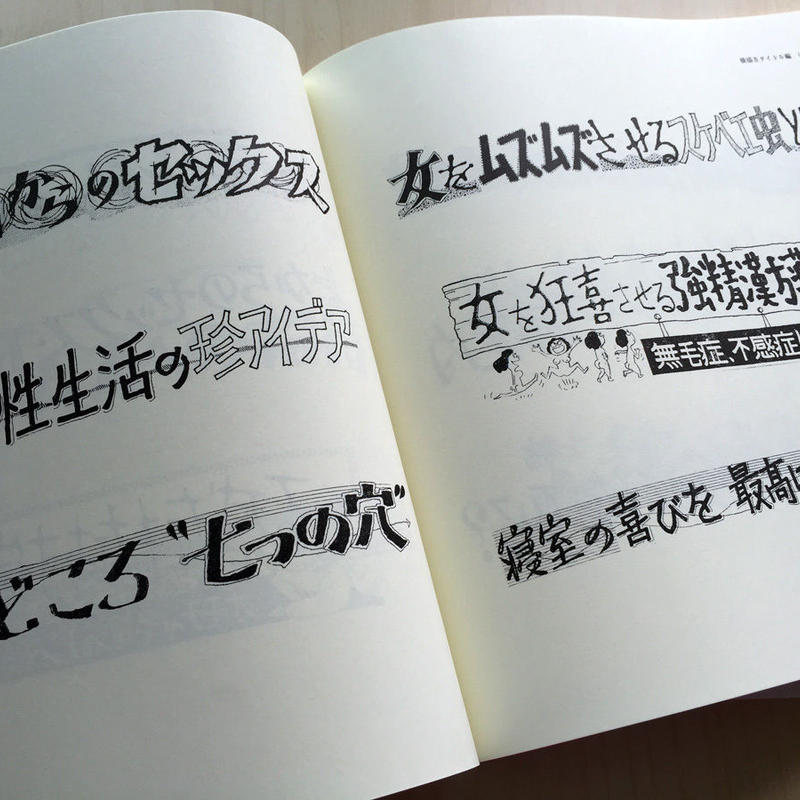 からのセックス
性生活の珍アイデア
どころ"七つの穴"
女をムズムズさせるスケベエ虫と
女を狂喜させる強精漢方薬
無毛症、不感症
寝室の喜びを 最高に